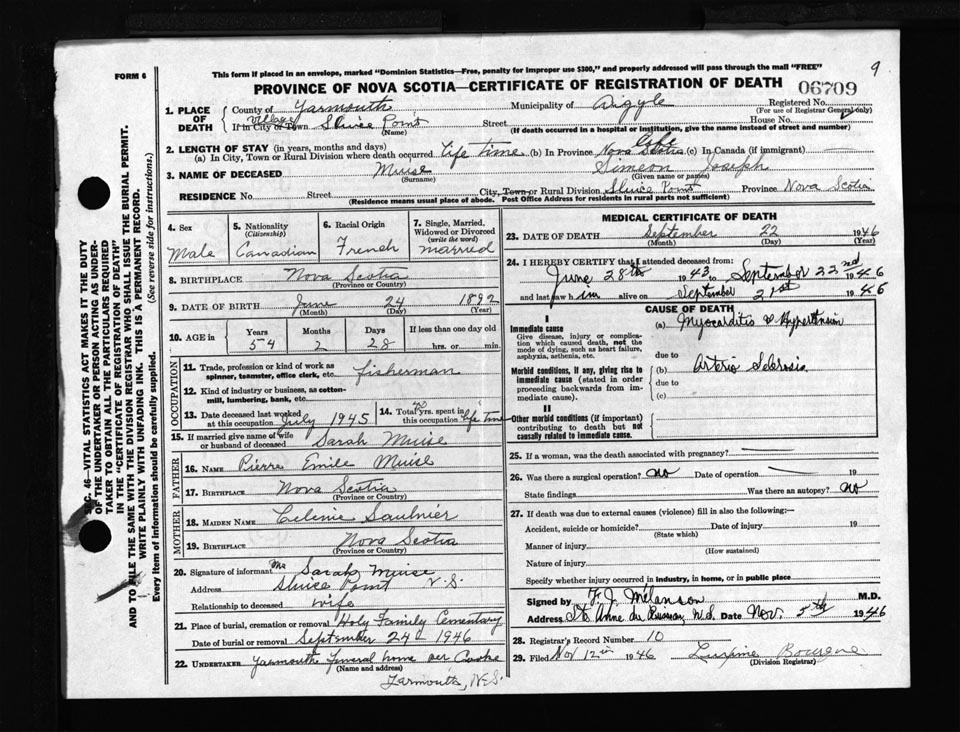 FORM 6
This form if placed in an envelope, marked "Dominion Statistics—Free, penalty for improper use $300," and properly addressed will pass through the mail "FREE"
9
PROVINCE OF NOVA SCOTIA—CERTIFICATE OF REGISTRATION OF DEATH
06709
1. PLACE OF DEATH
County of Yarmouth Municipality of Argyle Registered No.
(For use of Registrar General only)
village
If in City or Town Sluice Point Street House No.
(Name) (If death occurred in a hospital or institution, give the name instead of street and number)
2. LENGTH OF STAY (in years, months and days)
(a) In City, Town or Rural Division where death occurred life time (b) In Province Nova Scotia (c) In Canada (if immigrant)
3. NAME OF DECEASED Muise Simeon Joseph
(Surname) (Given name or names)
RESIDENCE No. Street City, Town or Rural Division Sluice Point Province Nova Scotia
(Residence means usual place of abode. Post Office Address for residents in rural parts not sufficient)
4. Sex Male
5. Nationality (Citizenship) Canadian
6. Racial Origin French
7. Single, Married, Widowed or Divorced (write the word) married
8. BIRTHPLACE Nova Scotia
(Province or Country)
9. DATE OF BIRTH June 24 1892
(Month) (Day) (Year)
10. AGE in Years Months Days If less than one day old
54 2 28 hrs. or min.
OCCUPATION
11. Trade, profession or kind of work as spinner, teamster, office clerk, etc. fisherman
12. Kind of industry or business, as cotton-mill, lumbering, bank, etc.
13. Date deceased last worked at this occupation July 1945
14. Total yrs. spent in this occupation life time
15. If married give name of wife or husband of deceased Sarah Muise
FATHER
16. NAME Pierre Emile Muise
17. BIRTHPLACE Nova Scotia
(Province or Country)
MOTHER
18. MAIDEN NAME Celenie Saulnier
19. BIRTHPLACE Nova Scotia
(Province or Country)
20. Signature of informant Mrs Sarah Muise
Address Sluice Point N.S.
Relationship to deceased wife
21. Place of burial, cremation or removal Holy Family Cementary
Date of burial or removal September 24 1946
22. UNDERTAKER Yarmouth funeral home per Cooke
(Name and address)
Yarmouth, N.S.
MEDICAL CERTIFICATE OF DEATH
23. DATE OF DEATH September 22 1946
(Month) (Day) (Year)
24. I HEREBY CERTIFY that I attended deceased from:
June 28th 1943 to September 22nd 1946
and last saw him alive on September 21st 1946
CAUSE OF DEATH
I
Immediate cause
Give disease, injury or complication which caused death, not the mode of dying, such as heart failure, asphyxia, asthenia, etc.
(a) Myocarditis & Hypertension
due to
Morbid conditions, if any, giving rise to immediate cause (stated in order proceeding backwards from immediate cause).
(b) Arterio Sclerosis
due to
(c)
II
Other morbid conditions (if important) contributing to death but not causally related to immediate cause.
25. If a woman, was the death associated with pregnancy?
26. Was there a surgical operation? no Date of operation 19
State findings Was there an autopsy? no
27. If death was due to external causes (violence) fill in also the following:—
Accident, suicide or homicide? Date of injury 19
(State which)
Manner of injury
(How sustained)
Nature of injury
Specify whether injury occurred in industry, in home, or in public place
Signed by F. J. Melanson M.D.
Address Ste Anne du Ruisseau, N.S. Date Nov. 5th 1946
28. Registrar's Record Number 10
29. Filed Nov 12th 1946
(Division Registrar)
SEC. 46—VITAL STATISTICS ACT MAKES IT THE DUTY
OF THE UNDERTAKER OR PERSON ACTING AS UNDERTAKER TO OBTAIN ALL THE PARTICULARS REQUIRED
IN THE "CERTIFICATE OF REGISTRATION OF DEATH"
AND TO FILE THE SAME WITH THE DIVISION REGISTRAR WHO SHALL ISSUE THE BURIAL PERMIT.
WRITE PLAINLY WITH UNFADING INK. THIS IS A PERMANENT RECORD.
Every item of information should be carefully supplied. (See reverse side for instructions.)